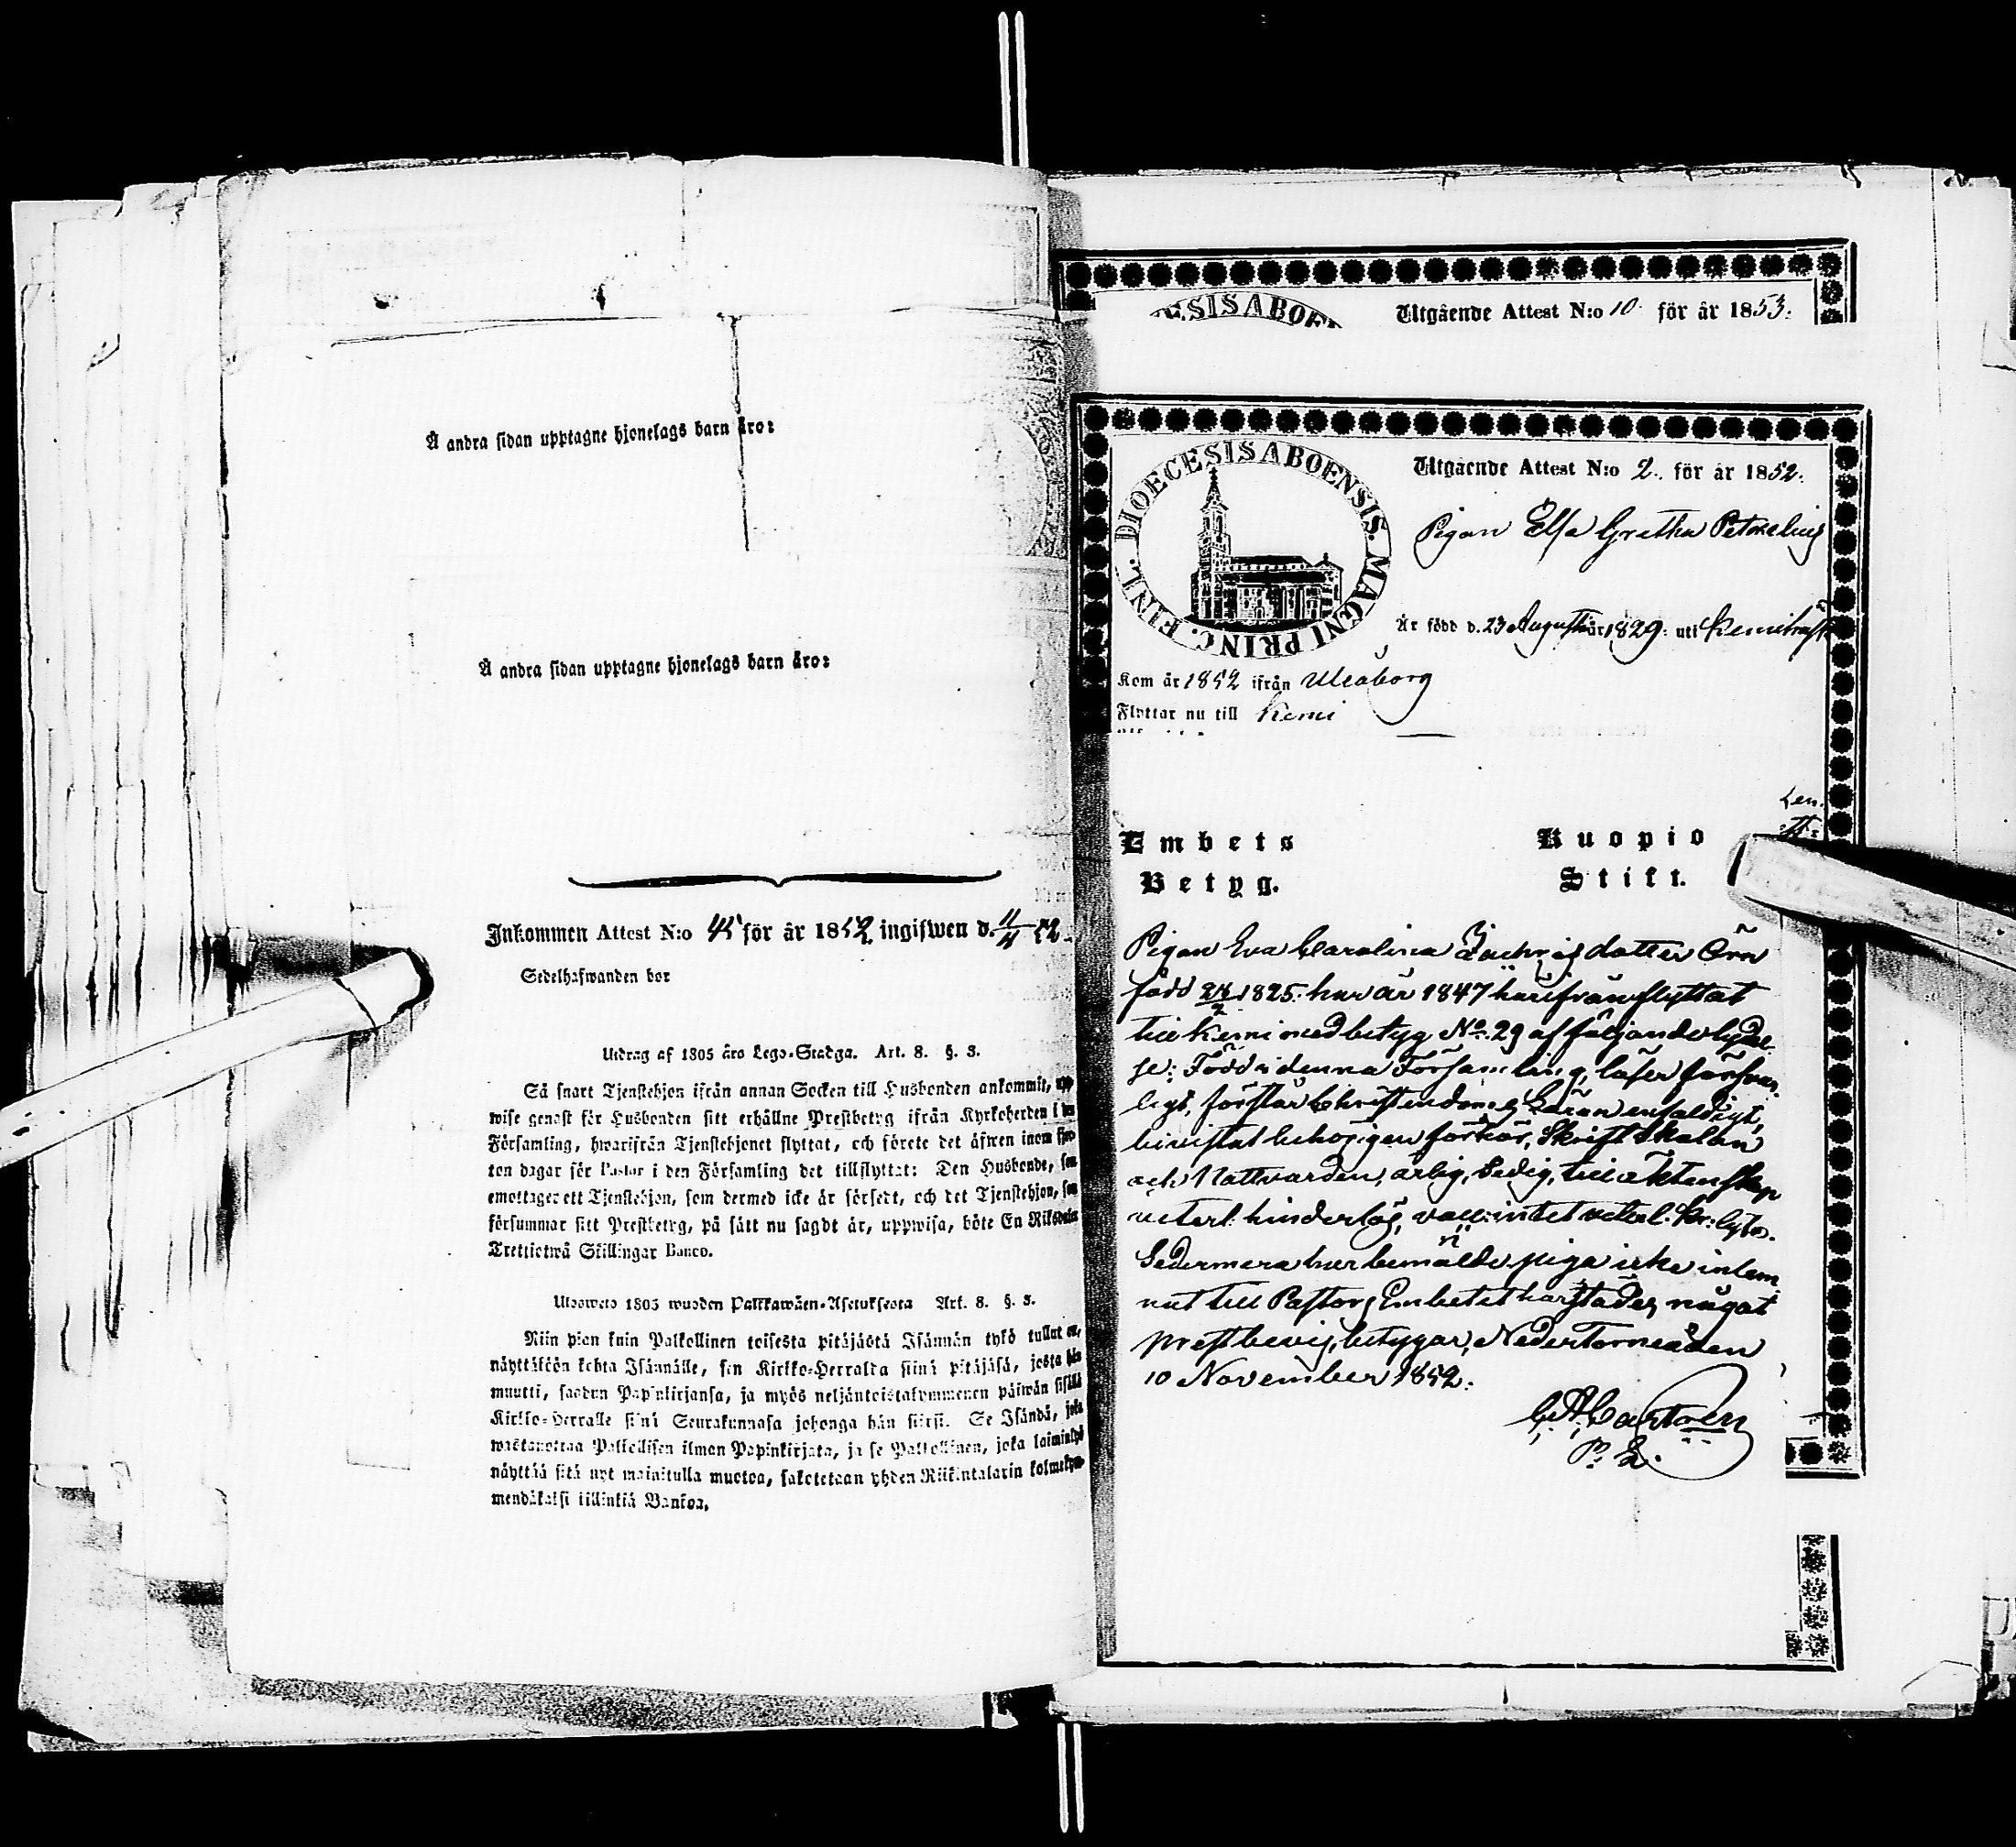 Å andra sidan upptagne hjonelags barn äro:
Å andra sidan upptagne hjonelags barn äro:
Inkommen Attest N:o 45 för år 1852 ingifwen d. 11/11 52.
Sedelhafwanden bor
Utdrag af 1805 års Lego-Stadga. Art. 8. §. 3.
Så snart Tjenstehjon ifrån annan Socken till Husbonden ankommit, upp-
wise genast för Husbonden sitt erhållne Prestbetyg ifrån Kyrkoherden i den
Församling, hwarifrån Tjenstehjonet flyttat, och förete det äfwen inom fjor-
ton dagar för Pastor i den Församling det tillflyttat: Den Husbonde, som
emottager ett Tjenstehjon, som dermed icke är försedt, och det Tjenstehjon, som
försummar sitt Prestbetyg, på sätt nu sagdt är, uppwisa, böte En Riksdaler
Trettiotwå Skillingar Banco.
Ulosweto 1805 wuoden Palkkawäen-Asetuksesta Art. 8. §. 3.
Niin pian kuin Palkollinen toisesta pitäjästä Isännän tykö tullut on,
näyttäköön kohta Isännälle, sen Kirkko-Herralda siinä pitäjäsä, josta hän
muutti, saadun Papinkirjansa, ja myös neljäntoistakymmenen päiwän sisällä
Kirkko-Herralle siinä Seurakunnasa johonga hän siirsi. Se Isändä, joka
wastanottaa Palkollisen ilman Papinkirjata, ja se Palkollinen, joka laiminlyö
näyttää sitä nyt mainitulla muotoa, saketetaan yhden Riikintalarin kolmekym-
mendäkaksi killinkiä Bankoa.
DIOECESIS ABOENSIS
Utgående Attest N:o 10 för år 1853.
DIOECESIS ABOENSIS. MAGNI PRINC. FINL.
Utgående Attest N:o 2. för år 1852.
Pigan Elsa Gretha Petrelius
Är född d. 23 Augusti år 1829: uti Kemiträsk
Kom år 1852 ifrån Uleåborg
Flyttar nu till Kemi
Embets Kuopio
Betyg. Stift.
Pigan Eva Carolina Zachrisdotter Örn
född 24/2 1825. har år 1847 härifrån flyttat
till Kemi med betyg No. 29 af följande lydel-
se: Född i denna Församling, läser försvar-
ligt, förstår Christendoms Läran enfaldigt,
bevistat behörigen förhör, Skriftskolan
och Nattvarden, ärlig, ledig, till äktenskap
veterl. hinderlös, vacc: intet veterl. kr: lyte.
Sedermera har bemälde piga icke inlem-
nat till Pastors Embetet härstädes något
prestbevis, betygar, NederTorneå den
10 November 1852.
P. L.